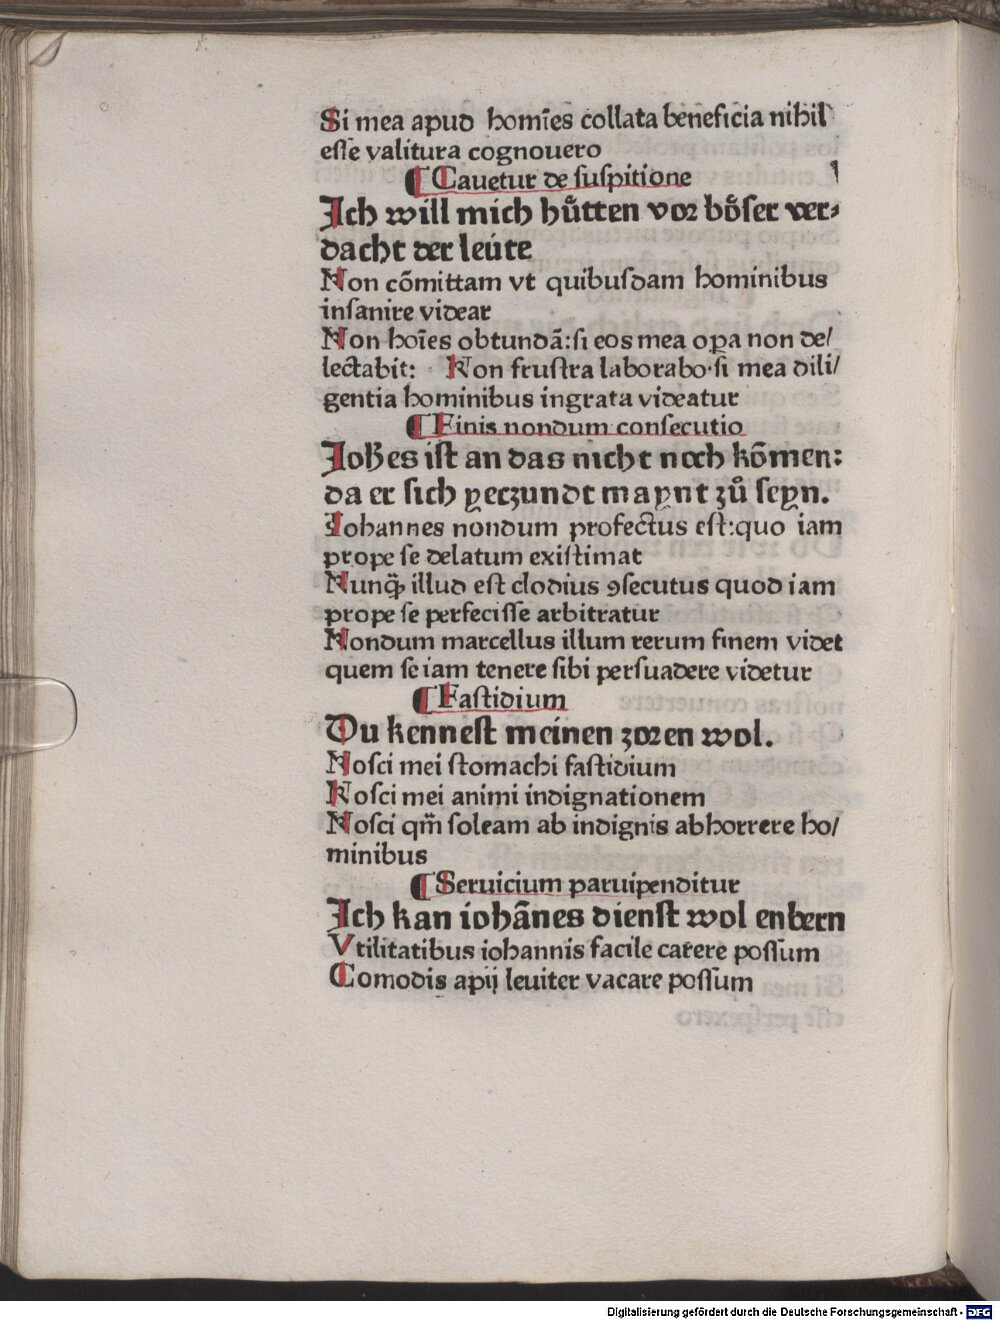 Si mea apud homīes collata beneficia nihil
eſſe valitura cognouero
¶ Cauetur de ſuſpitione
Ich will mich hůtten vor boͤſer ver⸗
dacht der leúte
Non cōmittam vt quibuſdam hominibus
inſanire videar
Non hoīes obtundā:ſi eos mea oꝑa non de/
lectabit: Non fruſtra laborabo·ſi mea dili/
gentia hominibus ingrata videatur
¶ Finis nondum conſecutio
Joh̄es iſt an das nicht noch kōmen:
da er ſich yeczundt maynt zů ſeyn.
Johannes nondum profectus eſt:quo iam
prope ſe delatum exiſtimat
Nunq̄ illud eſt clodius ꝯſecutus quod iam
prope ſe perfeciſſe arbitratur
Nondum marcellus illum rerum finem videt
quem ſe iam tenere ſibi perſuadere videtur
¶ Faſtidium
Du kenneſt meinen zoren wol.
Noſci mei ſtomachi faſtidium
Noſci mei animi indignationem
Noſci qm̄ ſoleam ab indignis abhorrere ho/
minibus
¶ Seruicium paruipenditur
Ich kan iohānes dienſt wol enbern
Vtilitatibus iohannis facile carere poſſum
Comodis apij leuiter vacare poſſum
Digitalisierung gefördert durch die Deutsche Forschungsgemeinschaft - DFG